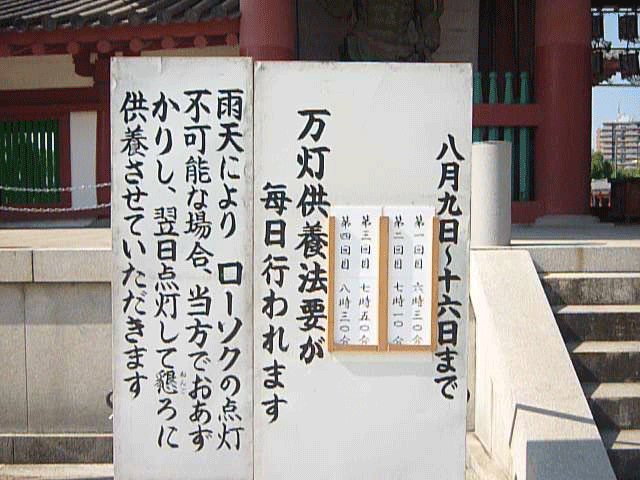 八月九日〜十六日まで
万灯供養法要が
毎日行われます
第一回目 六時三〇分
第二回目 七時一〇分
第三回目 七時五〇分
第四回目 八時三〇分
雨天により ローソクの点灯
不可能な場合、当方でおあず
かりし、翌日点灯して懇ろに
供養させていただきます